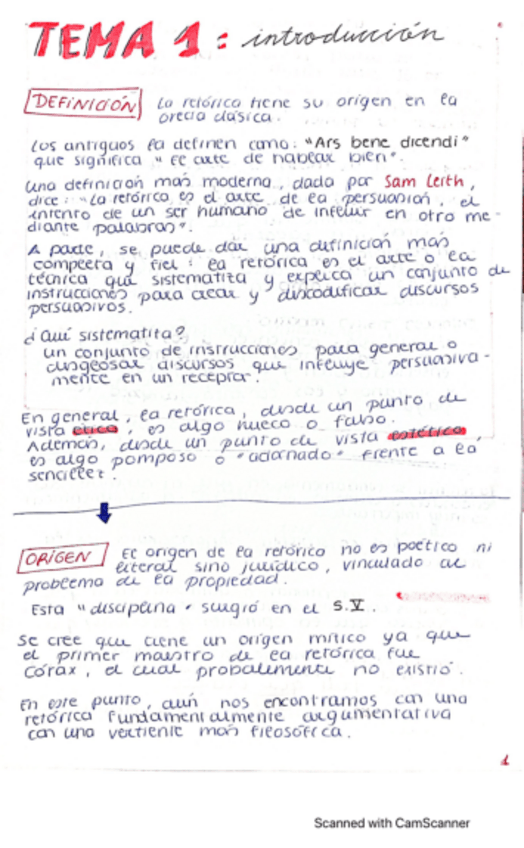 TEMA 1: introducción
DEFINICIÓN La retórica tiene su origen en la
Grecia clásica.
Los antiguos la definen como: "Ars bene dicendi"
que significa "el arte de hablar bien".
Una definición más moderna, dada por Sam Leith,
dice: "La retórica es el arte de la persuasión, el
intento de un ser humano de influir en otro me-
diante palabras".
A parte, se puede dar una definición más
completa y fiel: la retórica es el arte o la
técnica que sistematiza y explica un conjunto de
instrucciones para crear y descodificar discursos
persuasivos.
¿Qué sistematiza?
un conjunto de instrucciones para general o
discursos que influye persuasiva-
mente en un receptor.
En general, la retórica, desde un punto de
vista ético, es algo hueco o falso.
Además, desde un punto de vista estético,
es algo pomposo o "adornado" frente a la
sencillez
ORIGEN El origen de la retórica no es poético ni
literal sino jurídico, vinculado al
problema de la propiedad.
Esta "disciplina" surgió en el S.V.
Se cree que tiene un origen mítico ya que
el primer maestro de la retórica fue
Córax, el cual probablemente no existió.
En este punto, aún nos encontramos con una
retórica fundamentalmente argumentativa
con una vertiente más filosófica.
1
Scanned with CamScanner